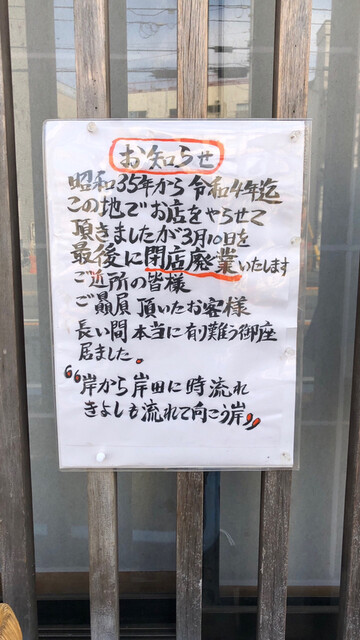 お知らせ
昭和35年から令和4年迄
この地でお店をやらせて
頂きましたが3月10日を
最後に閉店廃業いたします
ご近所の皆様
ご贔屓頂いたお客様
長い間本当に有難う御座
居ました。
“岸から岸田に時流れ
きよしも流れて向こう岸〟